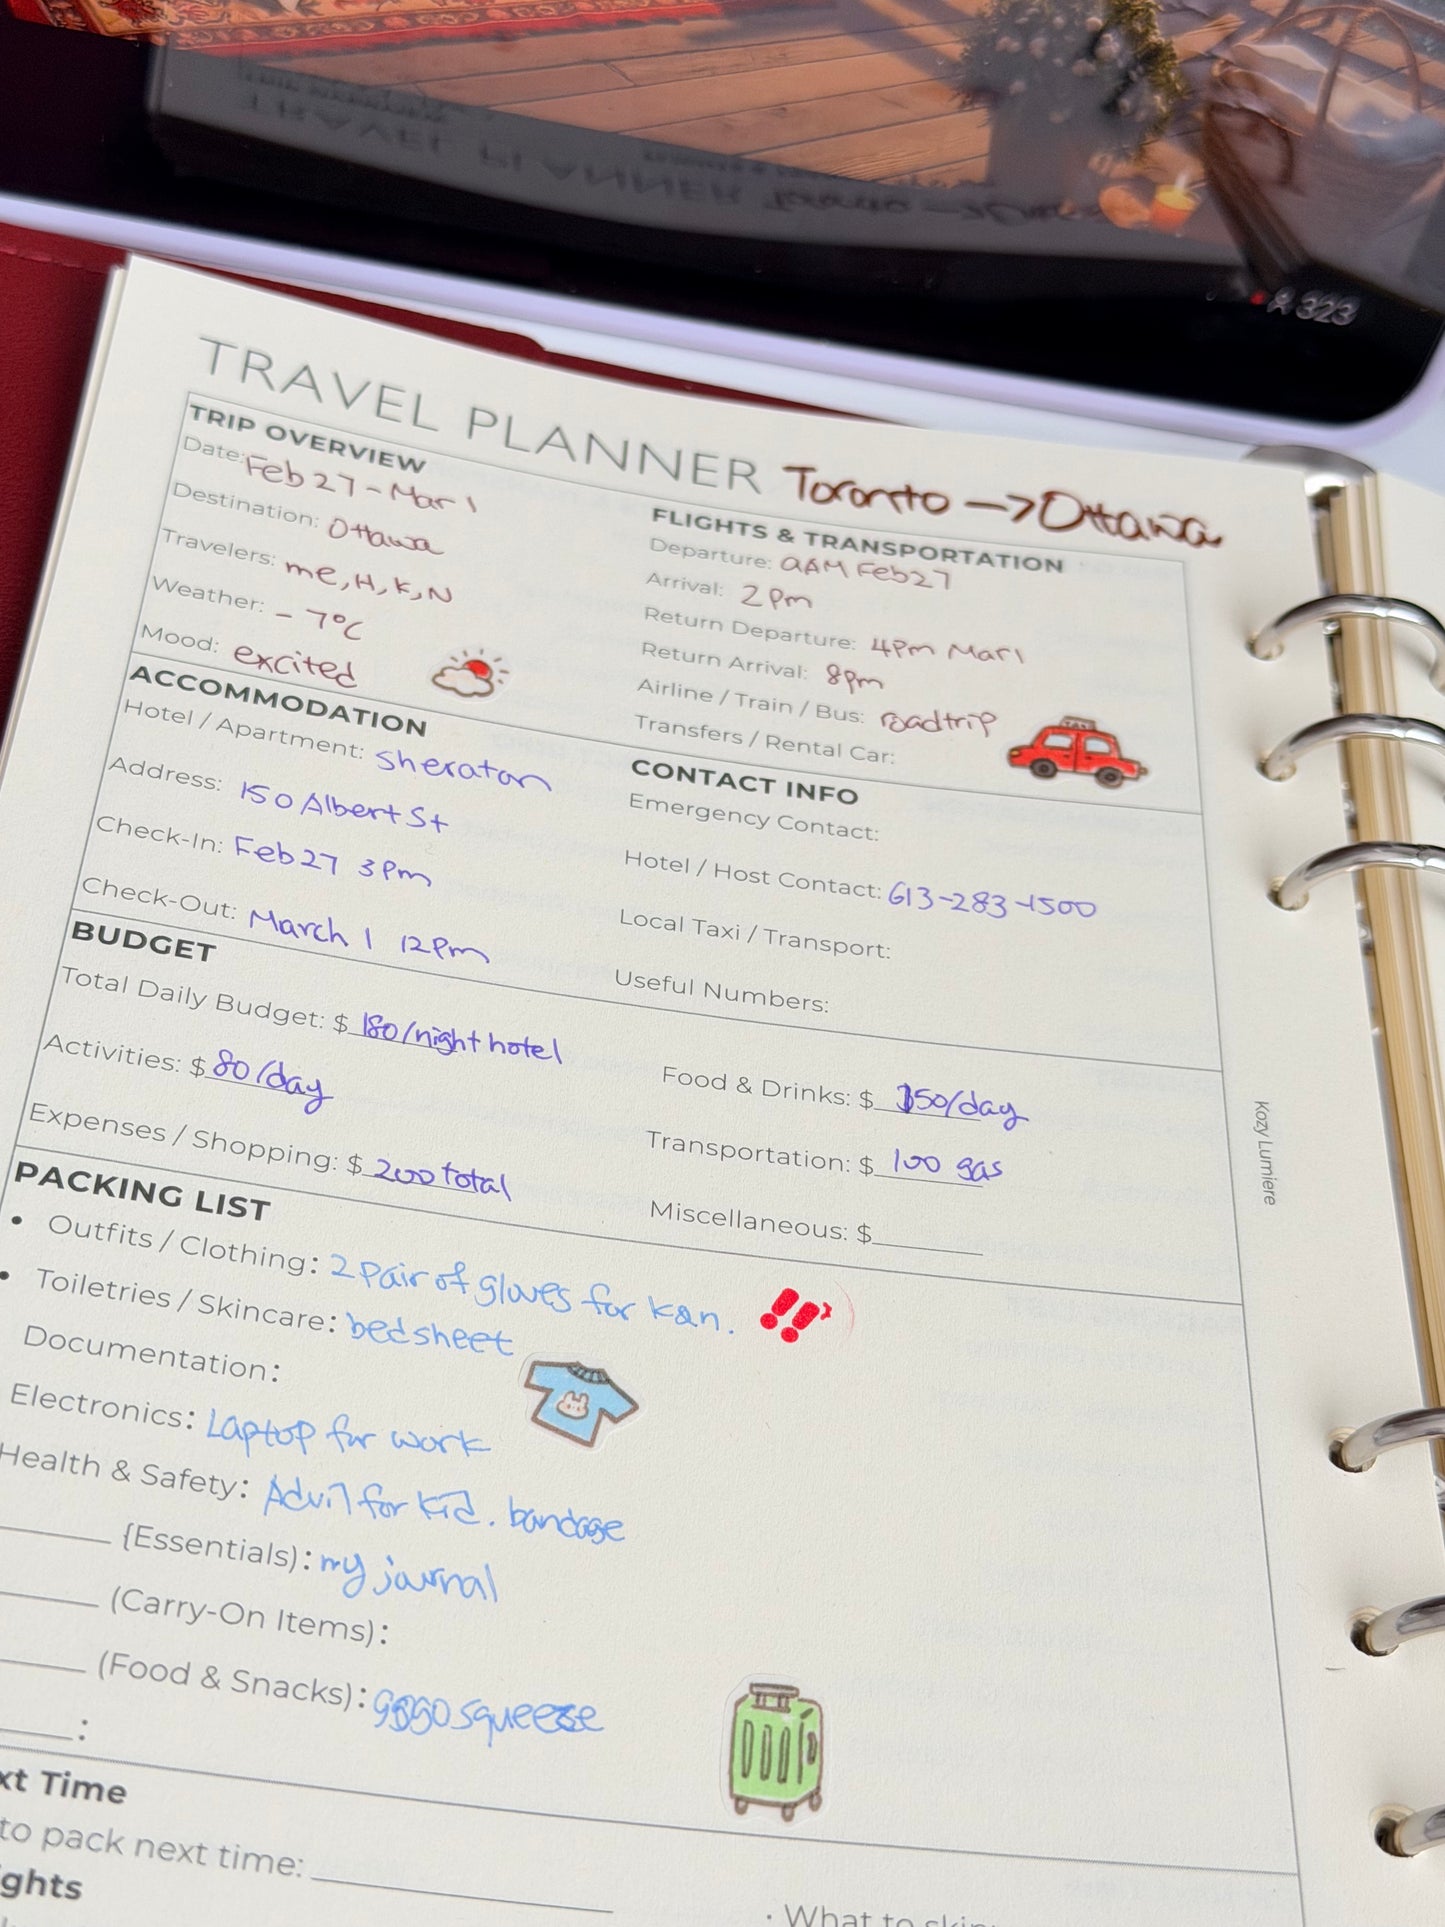 323
TRAVEL PLANNER Toronto → Ottawa
TRIP OVERVIEW
Date: Feb 27 - Mar 1
Destination: Ottawa
Travelers: me, H, K, N
Weather: - 7°C
Mood: excited
FLIGHTS & TRANSPORTATION
Departure: 9AM Feb 27
Arrival: 2pm
Return Departure: 4pm Mar 1
Return Arrival: 8pm
Airline / Train / Bus: roadtrip
Transfers / Rental Car:
TAXI
ACCOMMODATION
Hotel / Apartment: Sheraton
Address: 150 Albert St
Check-In: Feb 27 3pm
Check-Out: March 1 12pm
CONTACT INFO
Emergency Contact:
Hotel / Host Contact: 613-283-1500
Local Taxi / Transport:
Useful Numbers:
BUDGET
Total Daily Budget: $ 180/night hotel
Activities: $ 80/day
Expenses / Shopping: $ 200 total
Food & Drinks: $ 150/day
Transportation: $ 100 gas
Miscellaneous: $
Kozy Lumiere
PACKING LIST
• Outfits / Clothing: 2 pair of gloves for Kan. !!
• Toiletries / Skincare: bedsheet
Documentation:
Electronics: Laptop for work
Health & Safety: Advil for kid. bandage
{Essentials): my journal
(Carry-On Items):
(Food & Snacks): gogo squeeze
:
xt Time
to pack next time:
ghts
• What to skip